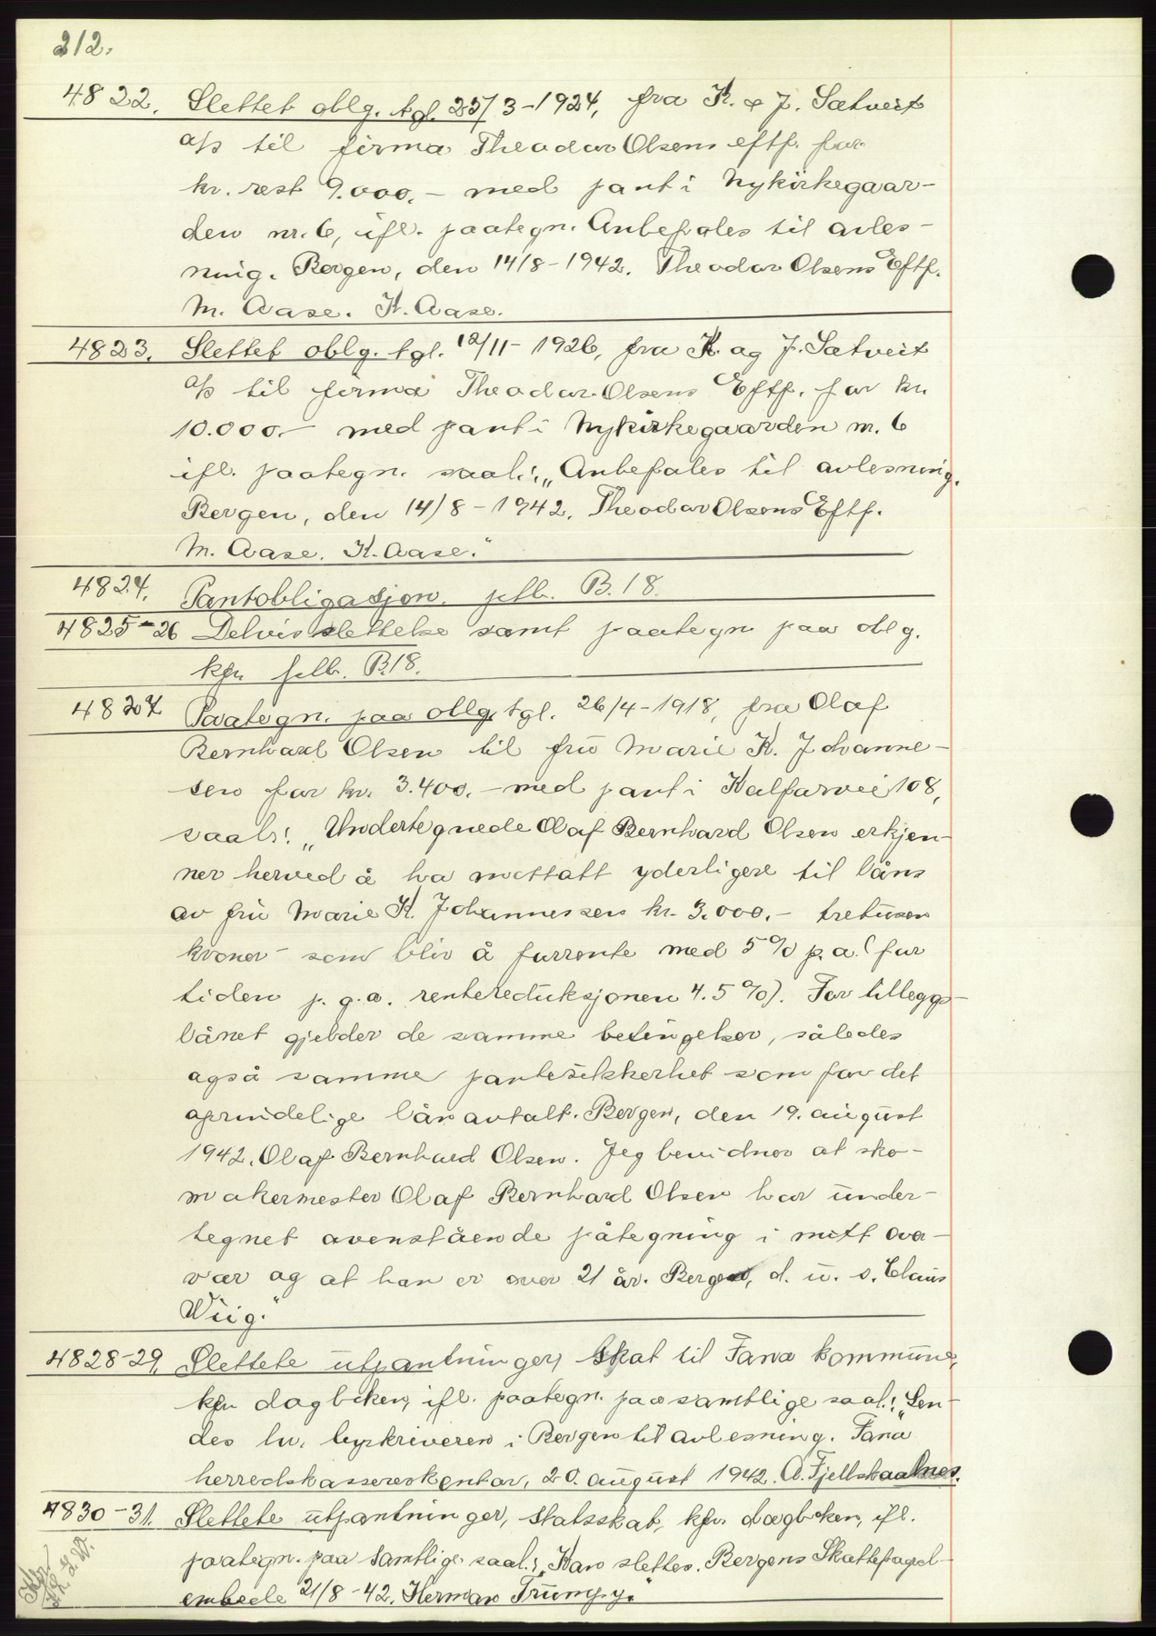 212.
4822. Slettet oblg. tgl. 25/3-1924, fra K. & J. Sætveit
a/s til firma Theodor Olsens eftf. for
kr. rest 9.000.- med pant i Nykirkegaar-
den nr. 6, ifl. paategn. Anbefales til avles-
ning. Bergen, den 14/8-1942. Theodor Olsens Eftf.
M. Aase. K. Aase.
4823. Slettet oblg. tgl. 12/11-1926, fra K. og J. Sætveit
a/s til firma Theodor Olsens Eftf. for kr.
10.000.- med pant i Nykirkegaarden nr. 6
ifl. paategn. saal.: „Anbefales til avlesning.
Bergen, den 14/8-1942. Theodor Olsens Eftf.
M. Aase. K. Aase."
4824. Pantobligasjon. pfb. B.18.
4825-26 Delvis slettelse samt paategn paa oblg.
kfr pfb. B18.
4827 Paategn. paa oblg. tgl. 26/4-1918, fra Olaf
Bernhard Olsen til frú Marie K. Johanne-
sen for kr. 3.400.- med pant i Kalfarvei 108,
saal.: „Undertegnede Olaf Bernhard Olsen erkjen-
ner herved å ha mottatt yderligere til låns
av frú Marie K. Johannessen kr. 3.000.- tretusen
kroner- som bliv å forrente med 5% p.a. (for
tiden p.g.a. rentereduksjonen 4.5%). For tilleggs-
lånet gjelder de samme betingelser, således
også samme pantesikkerhet som for det
oprindelige lån avtalt. Bergen, den 19. august
1942. Olaf Bernhard Olsen. Jeg bevidner at sko-
makermester Olaf Bernhard Olsen har under-
tegnet ovenstående påtegning i mitt over-
vær og at han er over 21 år. Bergen, d. u. s. Claus
Wiig."
4828-29. Slettete utpantninger, skat til Fana kommune,
kfr dagboken, ifl. paategn. paa samtlige saal.: „Sen-
des hr. byskriveren i Bergen til avlesning. Fana
herredskassererkontor, 20. august 1942. A. Fjellskaalnes.
4830-31. Slettete utpantninger, statsskat, kfr. dagboken, ifl.
paategn. paa samtlige saal.: „Kan slettes. Bergens Skattefogd-
embede 21/8-42. Herman Trumpy."